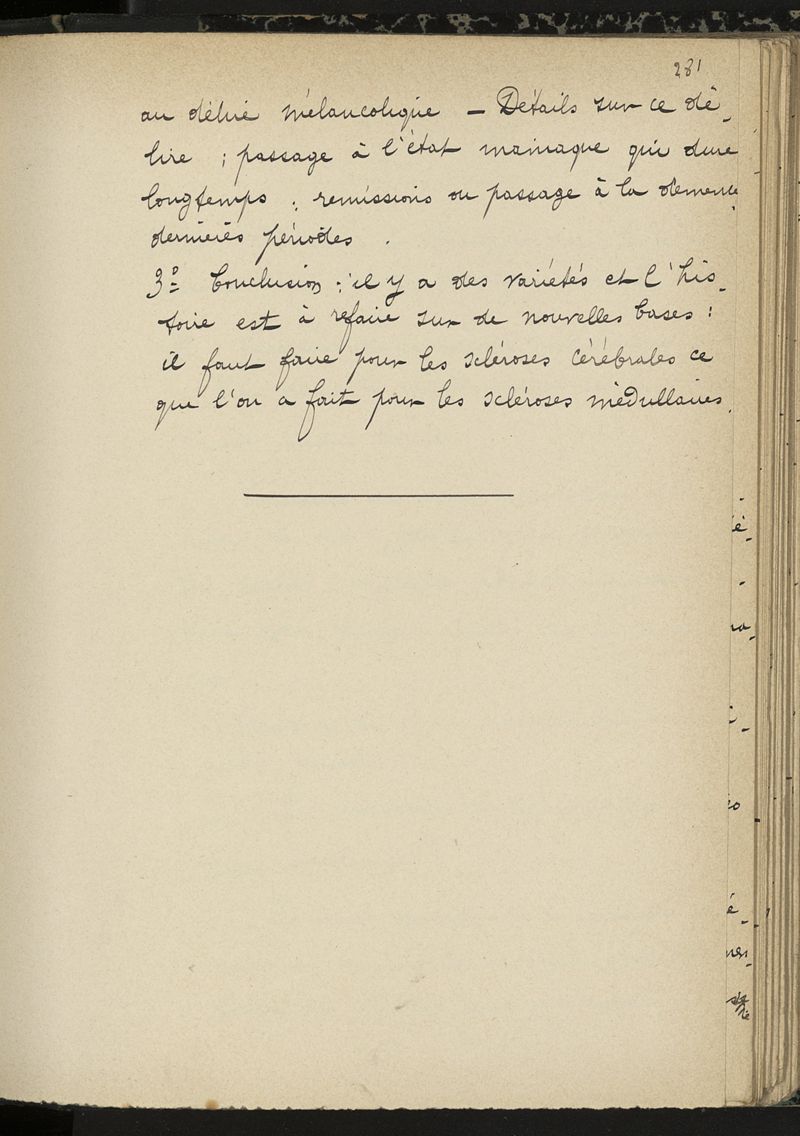 281
au délire mélancolique — Détails sur ce dé-
lire ; passage à l'état maniaque qui dure
longtemps ; remissions ou passage à la demence
dernières périodes .
3º Conclusion ; il y a des variétés et l'his-
toire est à refaire sur de nouvelles bases :
il faut faire pour les scléroses cérébrales ce
que l'on a fait pour les scléroses médullaires.